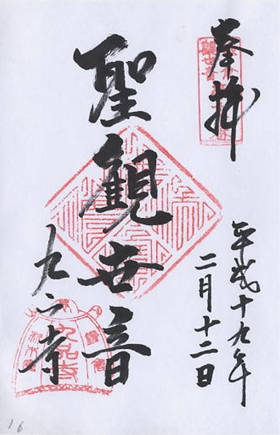 奉拝
平成十九年
二月十二日
聖観世音
九品寺
16